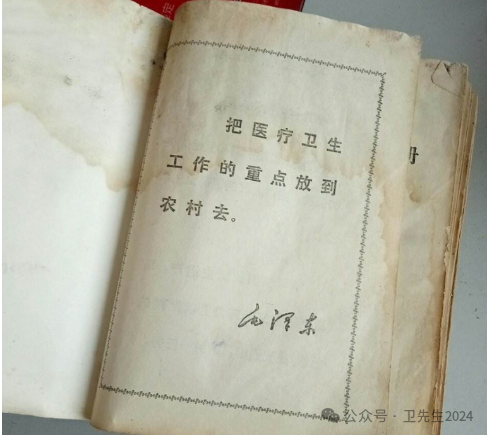 把医疗卫生
工作的重点放到
农村去。
毛泽东
册
公众号·卫先生2024